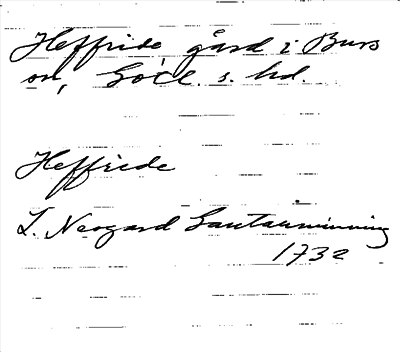 Heffride, gård i Burs
sn, Gotl. s. hd.
Heffride
L. Neogard Gautauminning
1732